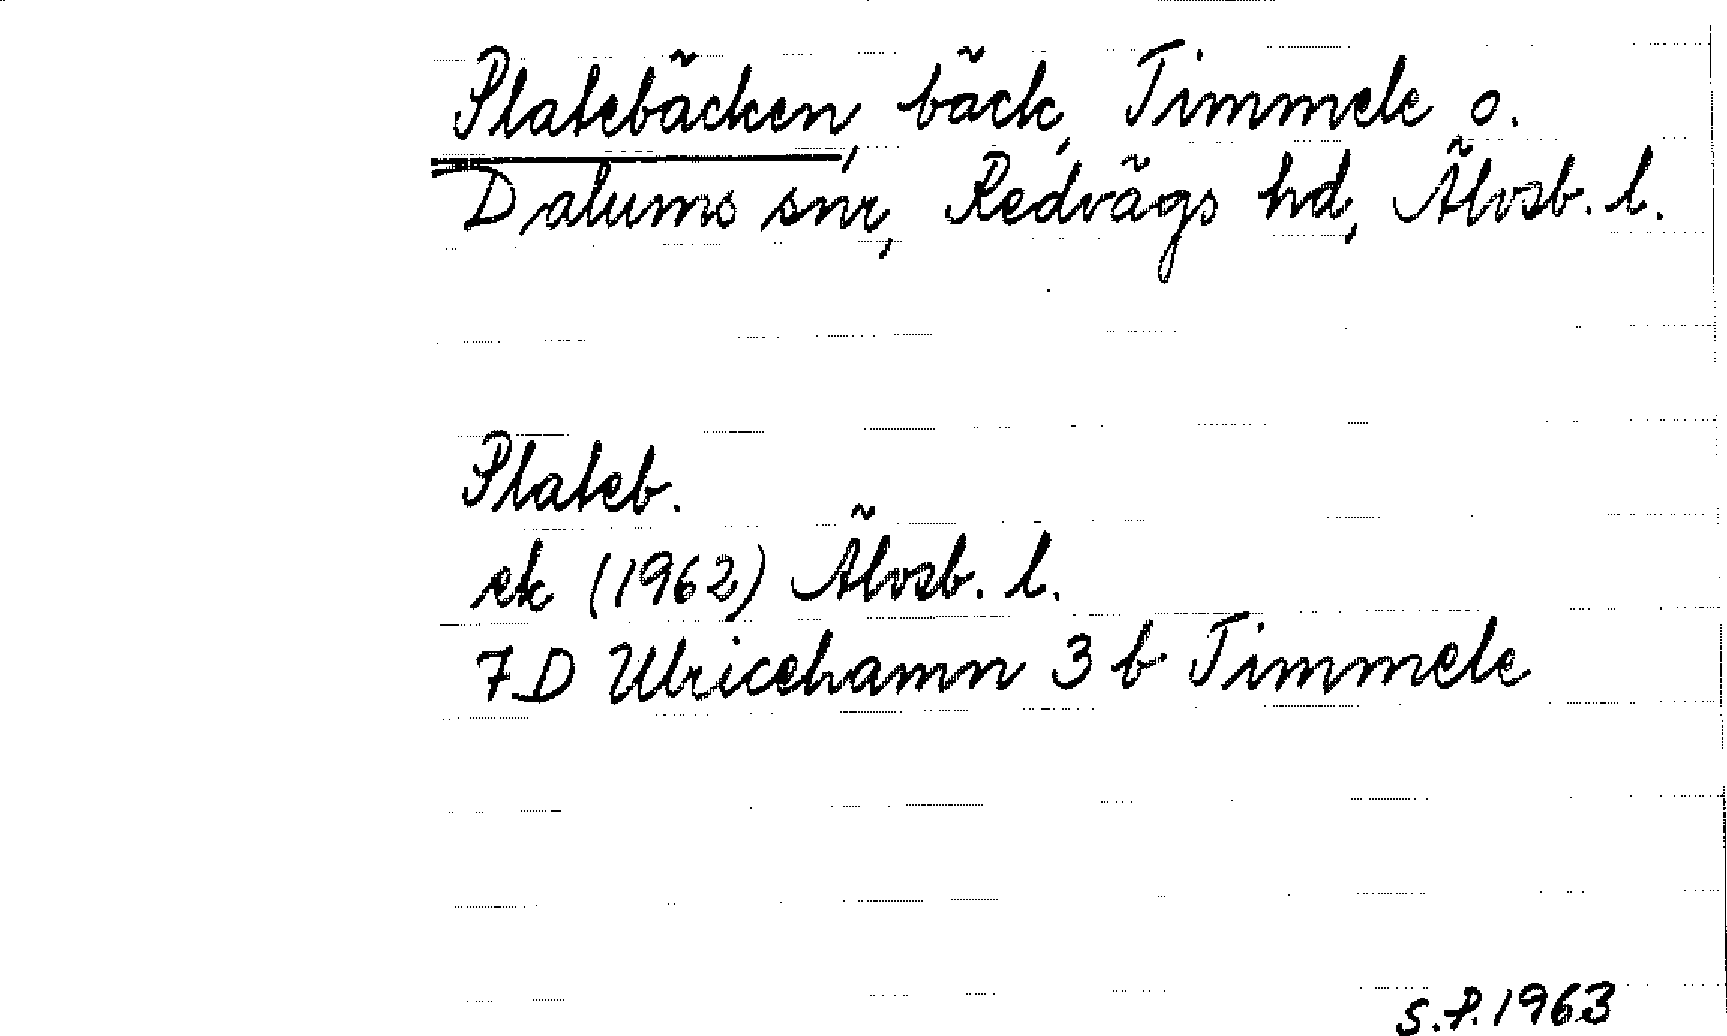 Platebäcken, bäck, Timmele o.
Dalums snr, Redvägs hd, Älvsb. l.
Plateb.
ek (1962) Älvsb. l.
7D Ulricehamn 3 b Timmele
S.P. 1963